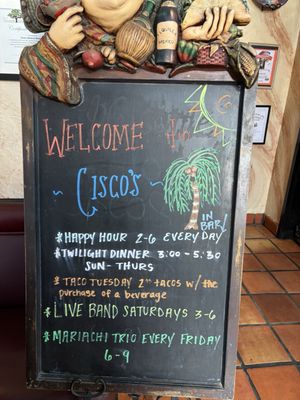 WELCOME to
CISCO'S
IN
BAR!
$HAPPY HOUR 2-6 EVERYDAY
$TWILIGHT DINNER 3:00-5:30
SUN-THURS
$TACO TUESDAY 2⁰⁰ TACOS w/ the
purchase of a beverage
$LIVE BAND SATURDAYS 3-6
$MARIACHI TRIO EVERY FRIDAY
6-9